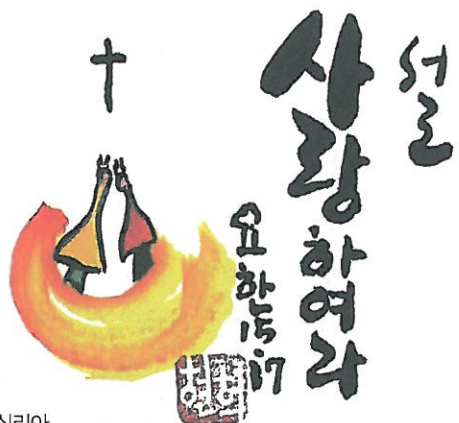 서로
사랑하여라
요한 15:17